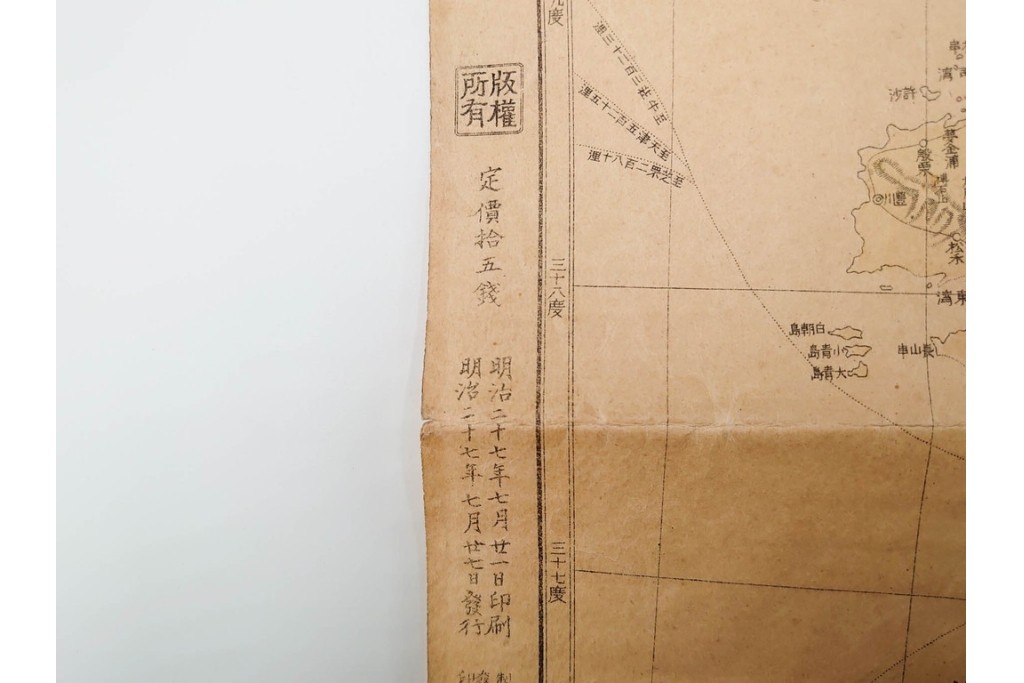 版權
所有
定價拾五錢
明治二十七年七月廿一日印刷
明治二十七年七月廿七日發行
九度
三十八度
三十七度
至牛莊三百二十三浬
至天津五百二十五浬
至芝罘二百八十浬
白翎島
小青島
大青島
長山串
許沙
夢金浦
殷栗
豐川
松禾
灣